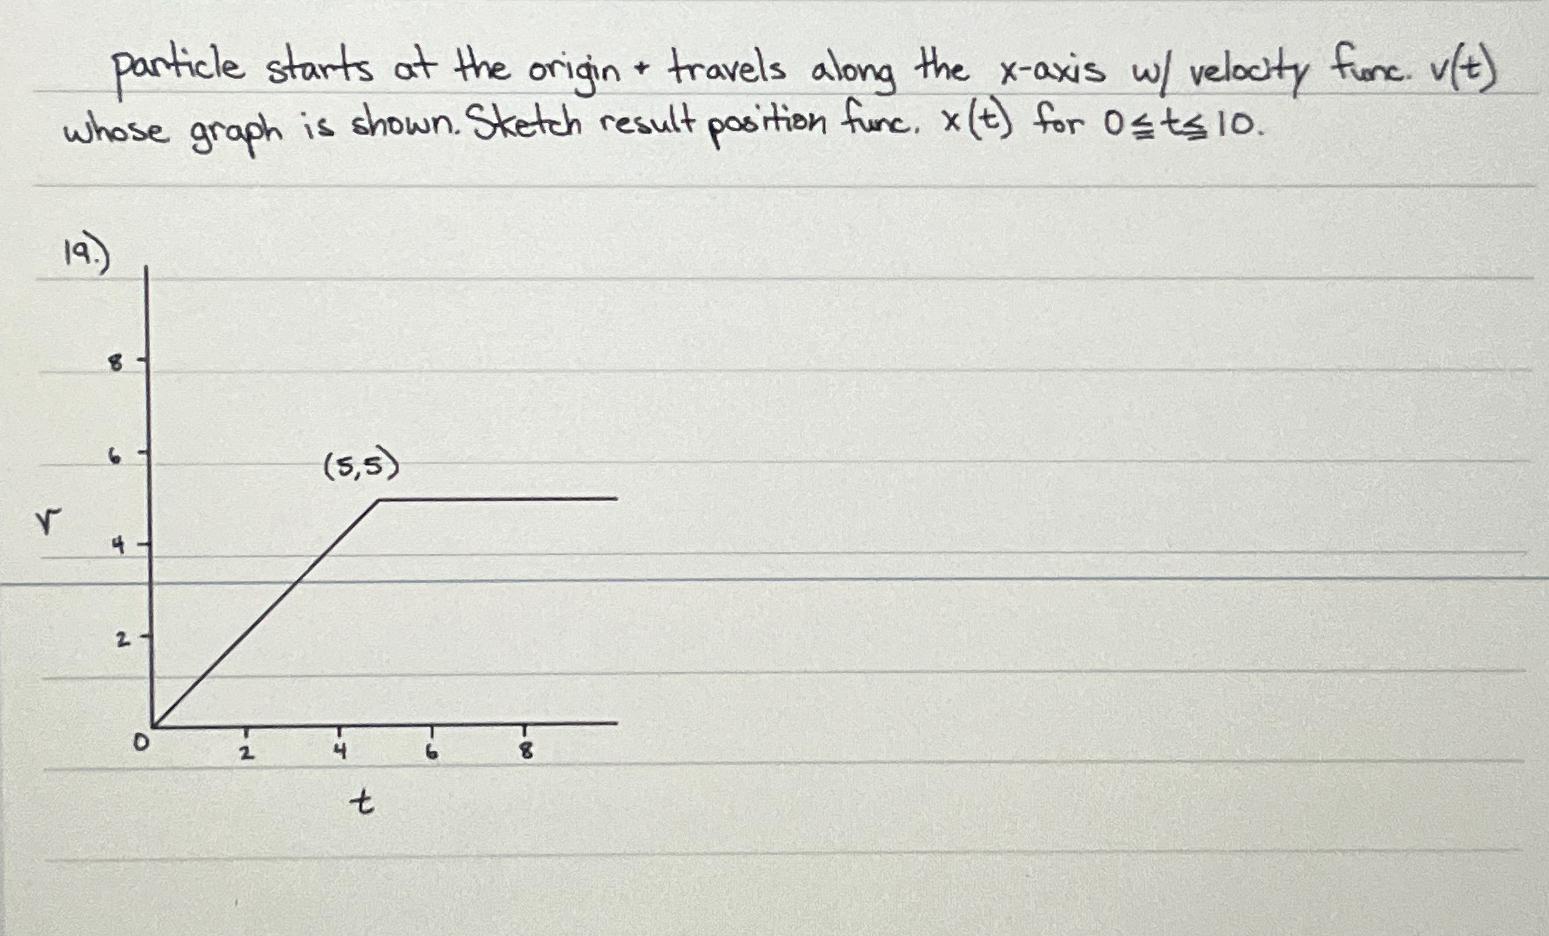 particle starts at the origin + travels along the x-axis w/ velocity func. v(t)
whose graph is shown. Sketch result position func. x(t) for 0≦t≦10.
19.)
8
6
(5,5)
v
4
2
0 2 4 6 8
t